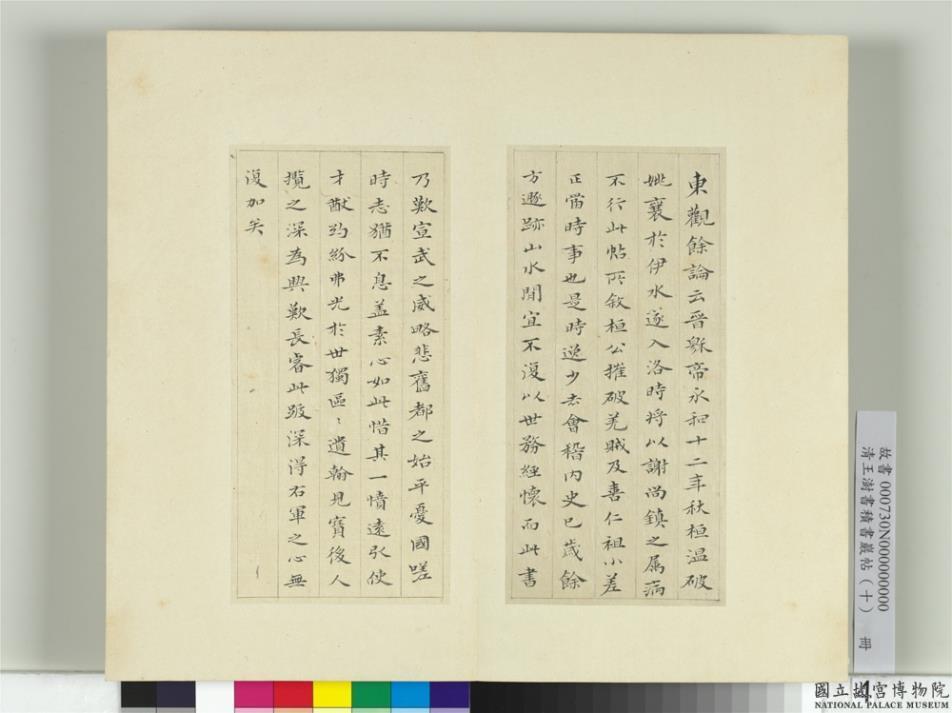 東觀餘論云晉穆帝永和十二年秋桓温破
姚襄於伊水遂入洛時将以謝尚鎮之属病
不行此帖所敘桓公摧破羌賊及喜仁祖小差
正當時事也是時逸少去會稽内史已歲餘
方遯跡山水間宜不復以世務經懷而此書
乃歎宣武之威略悲舊都之始平憂國嗟
時志猶不息盖素心如此惜其一憤遠引使
才猷約紛弗光於世獨區〻遺翰見寶後人
攬之深為興歎長睿此跋深得右軍之心無
復加矣
故書 000730N000000000
清王澍書積書巖帖（十） 冊
4
國立故宮博物院
NATIONAL PALACE MUSEUM